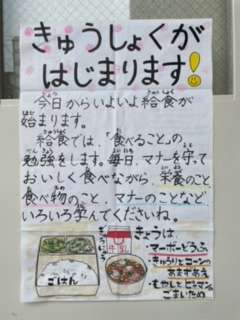 きゅうしょくが
はじまります!
今日からいよいよ給食が
始まります。
給食では、「食べること」の
勉強をします。毎日、マナーを守って
おいしく食べながら、栄養のこと
食べ物のこと、マナーのことなど、
いろいろ学んでくださいね。
きょうは
・マーボーどうふ
・きゅうりとコーンの
あまずあえ
・もやしとピーマンの
ごまいため
ごはん
ぎゅうにゅう
牛乳